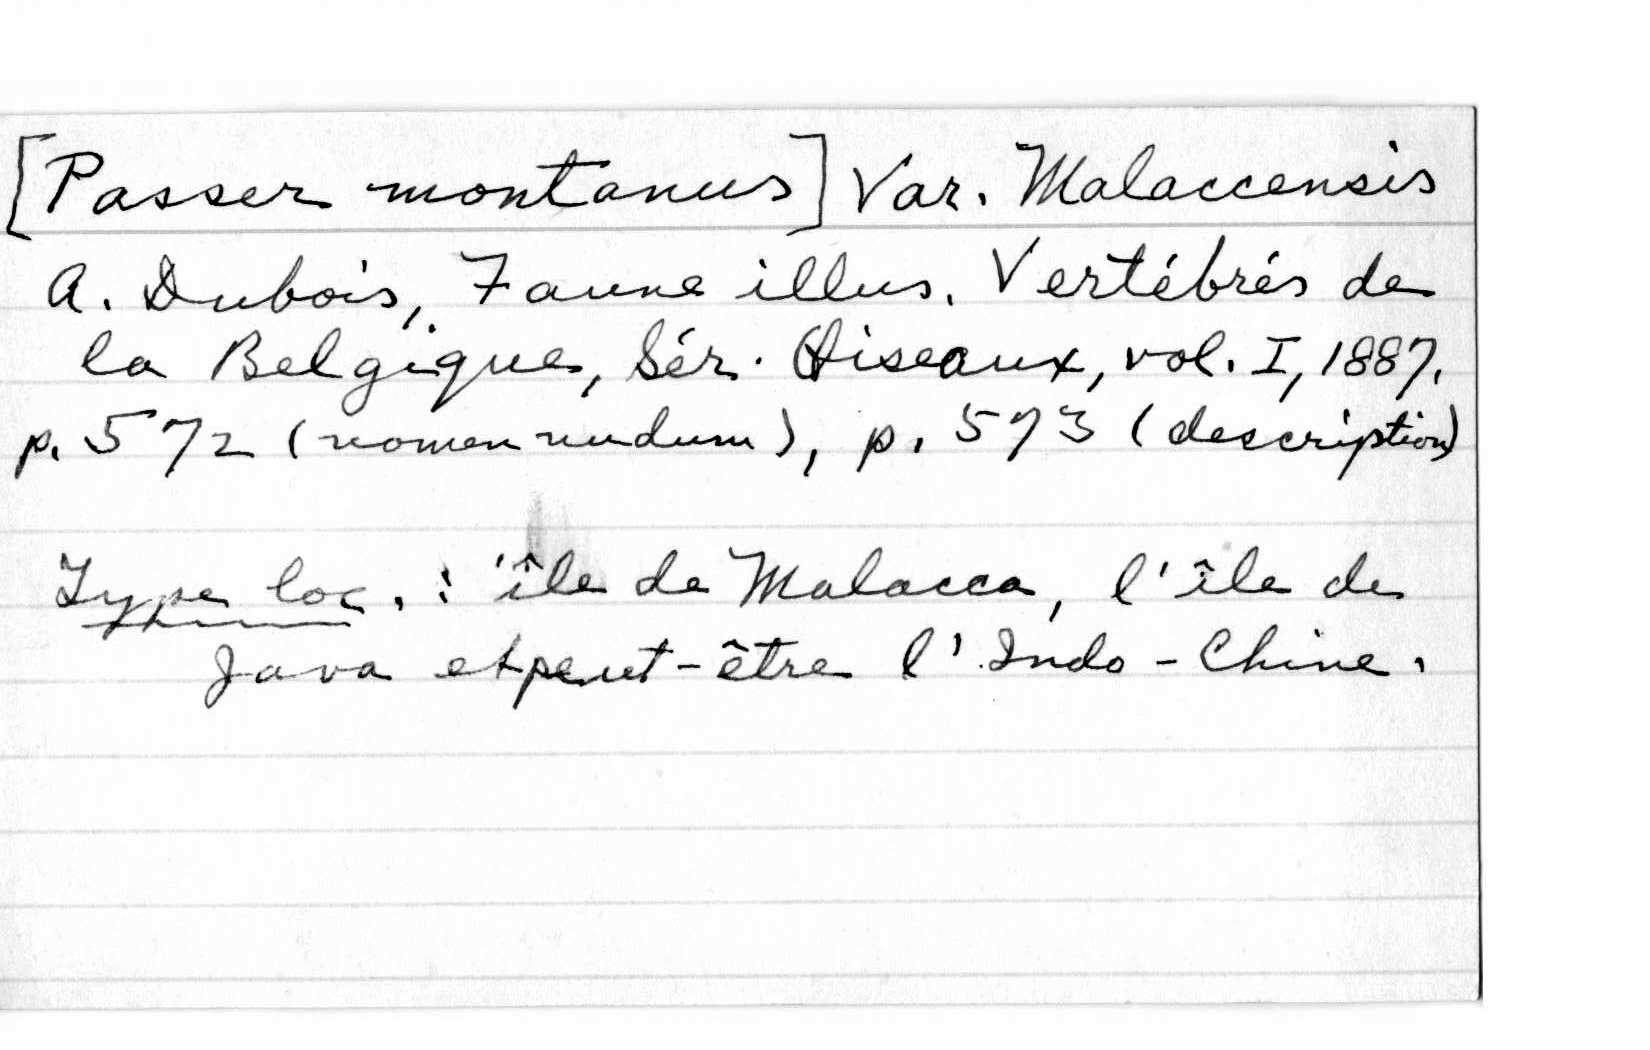 [Passer montanus] Var. Malaccensis
A. Dubois, Faune illus. Vertébrés de
la Belgique, Sér. Oiseaux, vol. I, 1887,
p. 572 (nomen nudum), p. 573 (description)
Type loc. : 'île de Malacca, l'île de
Java et peut-être l'Indo-Chine.